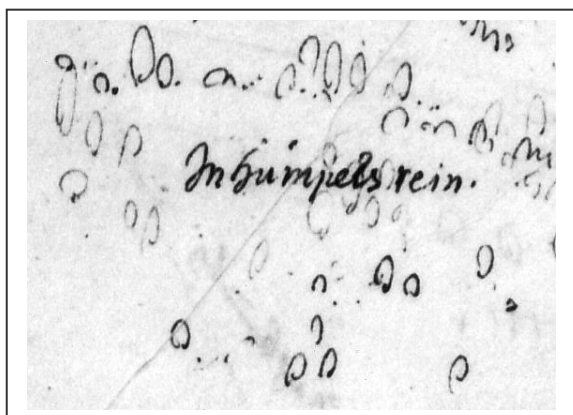 In humpels rein.